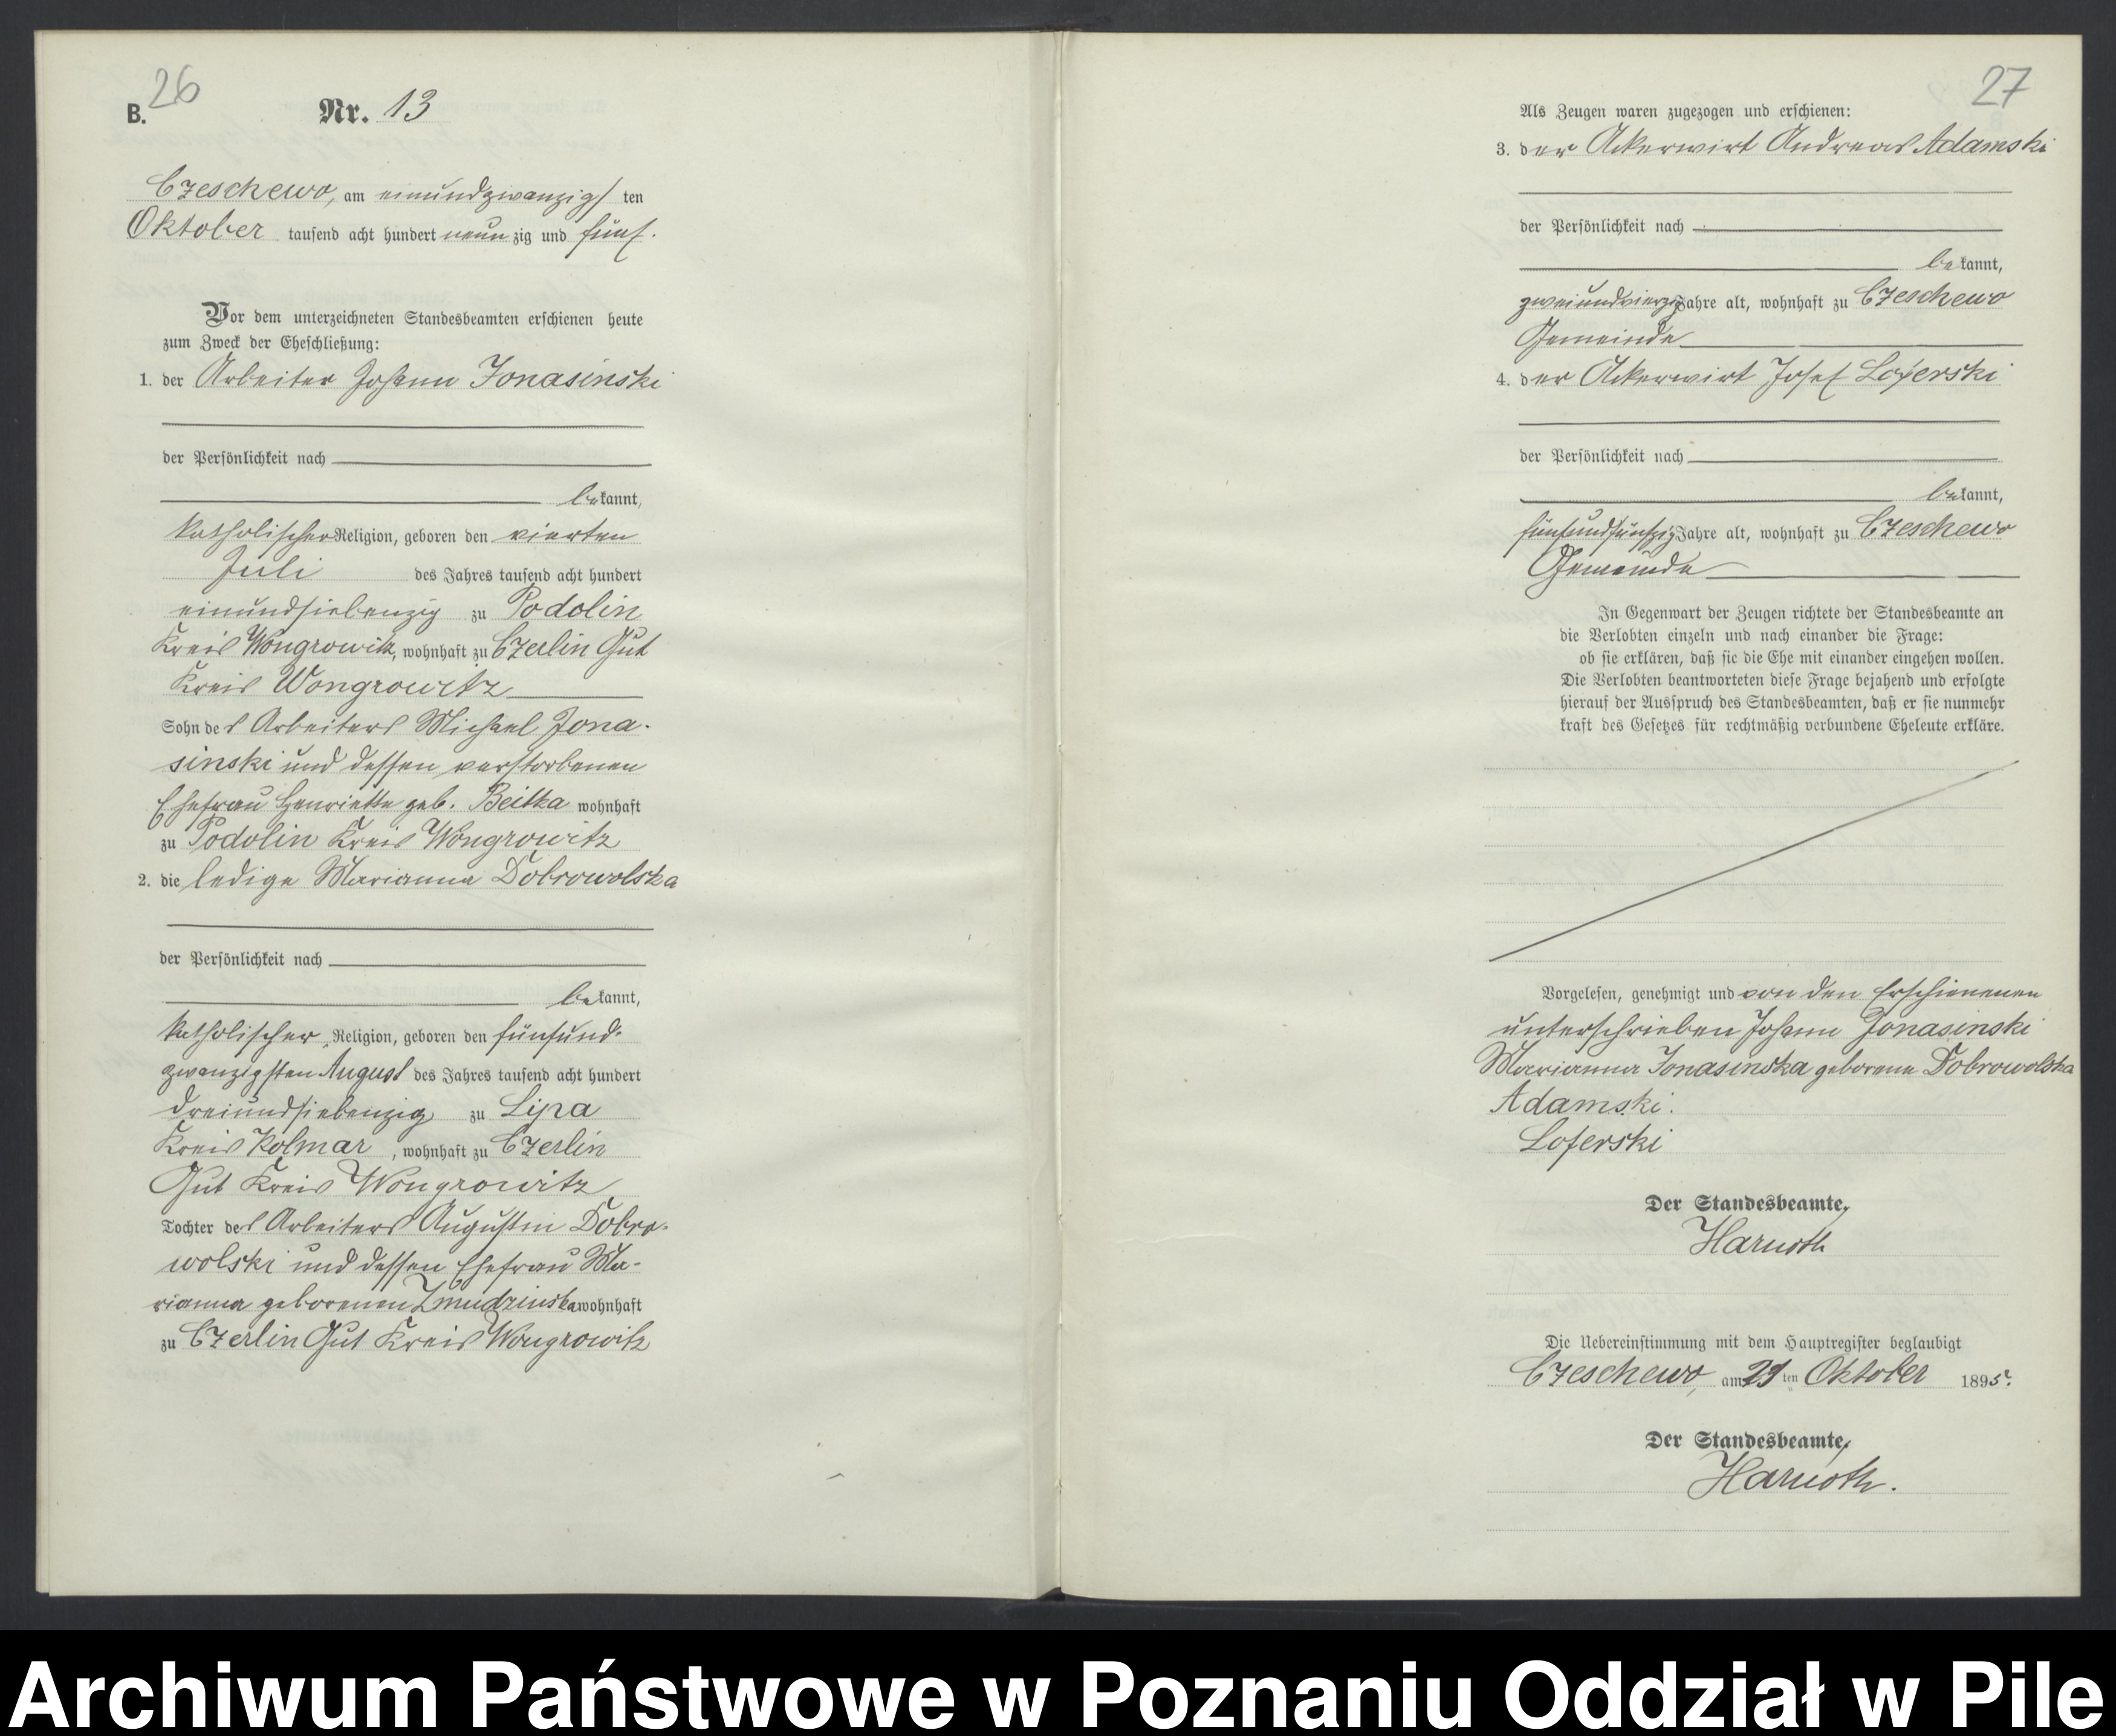 26
B.
Nr. 13
Czeschewo, am einundzwanzig ten
Oktober tausend acht hundert neunzig und fünf.
Vor dem unterzeichneten Standesbeamten erschienen heute
zum Zweck der Eheschließung:
1. der Arbeiter Johann Jonasinski
der Persönlichkeit nach
bekannt,
katholischer Religion, geboren den vierten
Juli des Jahres tausend acht hundert
einundsiebenzig zu Podolin
Kreis Wongrowitz, wohnhaft zu Czerlin Gut
Kreis Wongrowitz
Sohn des Arbeiters Michael Jona-
sinski und dessen verstorbenen
Ehefrau Henriette geb. Beitka wohnhaft
zu Podolin Kreis Wongrowitz
2. die ledige Marianna Dobrowolska
der Persönlichkeit nach
bekannt,
katholischer Religion, geboren den fünfund-
zwanzigsten August des Jahres tausend acht hundert
dreiundsiebenzig zu Lipa
Kreis Kolmar, wohnhaft zu Czerlin
Gut Kreis Wongrowitz
Tochter des Arbeiters Augustin Dobro-
wolski und dessen Ehefrau Ma-
rianna geborenen Zmudzinska wohnhaft
zu Czerlin Gut Kreis Wongrowitz
27
Als Zeugen waren zugezogen und erschienen:
3. der Ackerwirt Andreas Adamski
der Persönlichkeit nach
bekannt,
zweiundvierzig Jahre alt, wohnhaft zu Czeschewo
Gemeinde
4. der Ackerwirt Josef Loferski
der Persönlichkeit nach
bekannt,
fünfundfünfzig Jahre alt, wohnhaft zu Czeschewo
Gemeinde
In Gegenwart der Zeugen richtete der Standesbeamte an
die Verlobten einzeln und nach einander die Frage:
ob sie erklären, daß sie die Ehe mit einander eingehen wollen.
Die Verlobten beantworteten diese Frage bejahend und erfolgte
hierauf der Ausspruch des Standesbeamten, daß er sie nunmehr
kraft des Gesetzes für rechtmäßig verbundene Eheleute erkläre.
Vorgelesen, genehmigt und von den Erschienenen
unterschrieben Johann Jonasinski
Marianna Jonasinska geborene Dobrowolska
Adamski.
Loferski
Der Standesbeamte,
Harnoth
Die Uebereinstimmung mit dem Hauptregister beglaubigt
Czeschewo, am 21ten Oktober 1895.
Der Standesbeamte,
Harnoth.
Archiwum Państwowe w Poznaniu Oddział w Pile